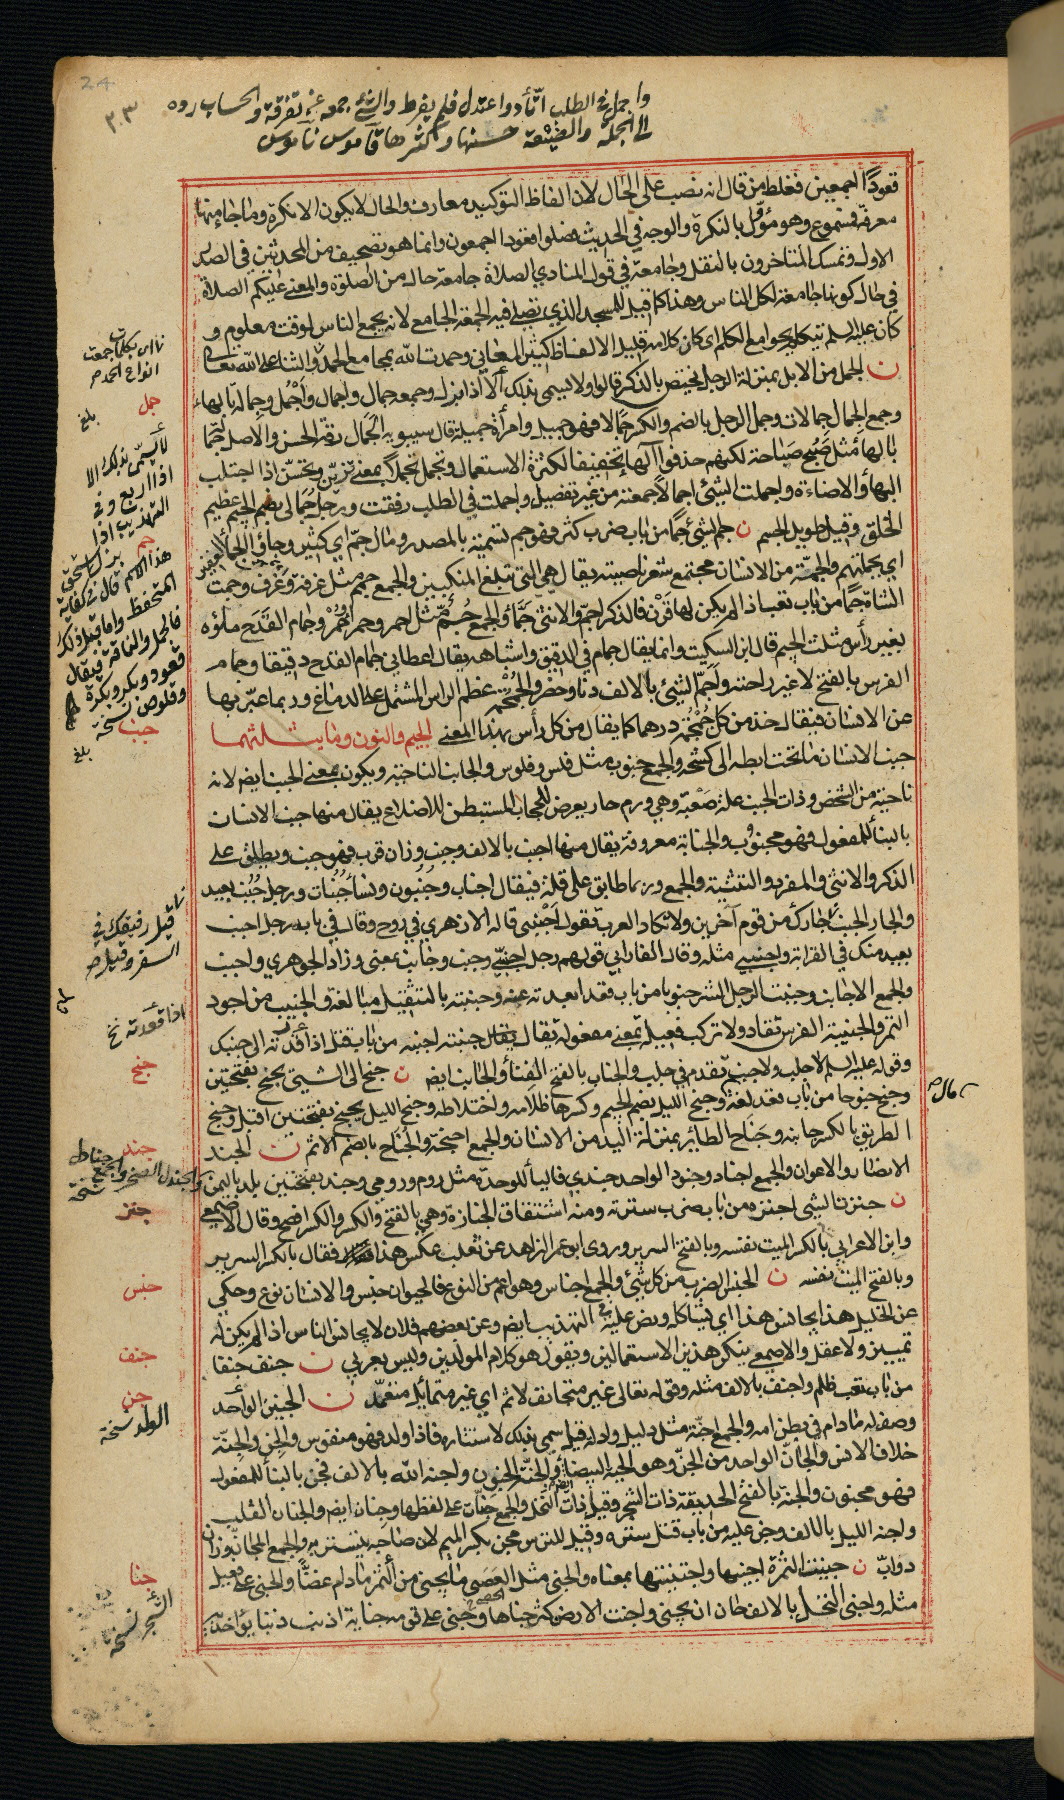 واجمل في الطلب اتأد واعتدل فلم يفرط والشيء جمعه عن تفرقة والحساب رده
الى الجملة والصنيعة حسنها وكثرها قاموس ناموس
قعودًا اجمعين فغلط من قال انه نصب على الحال لان الفاظ التوكيد معارف والحال لا يكون الا نكرة وما جا منها
معرفة فمسموع وهو مؤوّل بالنكرة والوجه في الحديث فصلوا قعودا اجمعون وانما هو تصحيف من المحدثين في الصدر
الاول وتمسك المتاخرون بالنقل وجامعة في قول المنادي الصلاة جامعة حال من الصلوة والمعنى عليكم الصلاة
في حال كونها جامعة لكل الناس وهذا كما قيل للمسجد الذي تصلى فيه الجمعة الجامع لانه يجمع الناس لوقت معلوم و
كان عليه السلم يتكلم بجوامع الكلم اى كان كلامه قليل الالفاظ كثير المعاني وحمدت الله بمجامع الحمد والثنا على الله تعالى
ن الجمل من الابل بمنزلة الرجل يختص بالذكر قالوا ولا يسمى بذلك الا اذا بزل وجمعه جمال واجمال واجمل وجمالة بالهاء
وجمع الجمال جمالات وجمل الرجل بالضم والكسر جمالا فهو جميل وامرأة جميلة قال سيبويه الجمال رقة الحسن والاصل جمالة
بالها مثل صبح صباحة لكنهم حذفوا الها تخفيفا لكثرة الاستعمال وتجمل تجملا بمعنى تزين وتحسّن اذا اجتلب
البهأ والاضاءة واجملت الشئ اجمالا جمعته من غير تفصيل واجملت في الطلب رفقت ورجل جمالى بضم الجيم عظيم
الخلق وقيل طويل الجسم ن جم الشئ جمّا من باب ضرب كثر فهو جم تسمية بالمصدر ومال جمّ اي كثير وجاؤا الجمأ الغفير
اي بجملتهم والجمّة من الانسان مجتمع شعر ناصيته يقال هي التي تبلغ المنكبين والجمع جمم مثل غرفة وغرف وجمت
الشاة جممًا من باب تعب اذا لم يكن لها قرن فالذكر اجم والانثى جمّأ والجمع جُمّ مثل احمر وحمرأ وحُمْر وجمام القدح ملؤه
بغير رأس مثلث الجيم قال ابن السكيت وانما يقال جمام في الدقيق واشباهه يقال اعطاني جمام القدح دقيقا وجمام
الفرس بالفتح لا غير راحته واجمّ الشئ بالالف دنا وحضر والجُمْجُمة عظم الراس المشتمل على الدماغ وربما عبّر بها
عن الانسان فيقال خذ من كل جُمْجُمة درهما كما يقال من كل رأس بهذا المعنى الجيم والنون وما يثلثهما
جنب الانسان ما تحت ابطه الى كشحه والجمع جنوب مثل فلس وفلوس والجانب الناحية ويكون بمعنى الجنب ايض لانه
ناحية من الشخص وذات الجنب علة صَعْبة وهي ورم حار يعرض للحجاب المستبطن للاضلاع يقال منها جنب الانسان
بالبنأ للمفعول فهو مجنوب والجنابة معروفة يقال منها اجنب بالالف وجنب وزان قرب فهو جنب ويطلق على
الذكر والانثى والمفرد والتثنية والجمع وربما طابق على قلة فيقال اجناب وجُنُبون ونسأ جُنُبات ورجل جُنُب بعيد
والجار الجنب جارك من قوم آخرين ولا تكاد العرب تقول اَجْنَبى قاله الازهري في روح وقال في بابه رجل اجنب
بعيد منك في القرابة واجنبى مثله وقال الفارابي قولهم رجل اجنبى وجنب وجانب بمعنى وزاد الجوهري واجنب
والجمع الاجانب وجنبت الرجل الشر جنوبا من باب قعد ابعدته عنه وجنبته بالتثقيل مبالغة والجنيب من اجود
التمر والجنيبة الفرس تقاد ولا تركب فعيلة بمعنى مفعولة يقال جنبته اجنبه من باب قتل اذا قدته الى جنبك
وقوله عليه السلم لا جلب ولا جنب تقدم في جلب والجناب بالفتح الفنأ والجانب ايض ن جنح الى الشئ يجنح بفتحتين
وجنح جنوحا من باب قعد لغة وجنح الليل بضم الجيم وكسرها ظلامه واختلاطه وجنح الليل يجنح بفتحتين اقبل وجنح
الطريق بالكسر جانبه وجَناح الطائر بمنزلة اليد من الانسان والجمع اجنحة والجُناح بالضم الاثم ن الجند
الانصار والاعوان والجمع اجناد وجنود الواحد جندي فاليأ للوحدة مثل روم ورومي وجند بفتحتين بلد باليمن
ن جنزت الشى اجنزه من باب ضرب سترته ومنه اشتقاق الجنازة وهي بالفتح والكسر والكسر افصح وقال الاصمعي
وابن الاعرابي بالكسر الميت نفسه وبالفتح السرير وروى ابو عمر الزاهد عن ثعلب عكس هذا فقال بالكسر السرير
وبالفتح الميت نفسه ن الجنس الضرب من كل شئ والجمع اجناس وهو اعم من النوع فالحيوان جنس والانسان نوع وحكي
عن الخليل هذا يجانس هذا اي يشاكله ونص عليه في التهذيب ايض وعن بعضهم فلان لا يجانس الناس اذا لم يكن له
تمييز ولا عقل والاصمعي ينكر هذين الاستعمالين ويقول هو كلام المولدين وليس بعربي ن جنف جنفا
من باب تعب ظلم واجنف بالالف مثله وقوله تعالى غير متجانف لاثم اي غير متمايل متعمّد ن الجنين الواحد
وصف له ما دام في بطن امه والجمع اجنة مثل دليل وادلة قيل سمي بذلك لاستتاره فاذا ولد فهو منفوس والجن والجِنّة
خلاف الانس والجانّ الواحد من الجنّ وهو الحية البيضا والجنّة الجنون واجنه الله بالالف فجن بالبنأ للمفعول
فهو مجنون والجنة بالفتح الحديقة ذات الشجر وقيل ذات النخل والجمع جنّات على لفظها وجنان ايض والجنان القلب
واجنه الليل بالالف وجن عليه من باب قتل ستره وقيل للترس مجن بكسر الميم لان صاحبه يتستر به والجمع المجانّ وزان
دوابّ ن جنيت الثمرة اجنيها واجتنيتها بمعناه والجنى مثل الحصى ما يجنى من الثمر ما دام غضًّا والجنى على فعيل
مثله واجنى النخل بالالف حان ان يجنى واجنت الارض كثر جناها وجنى على قومه جناية اذنب ذنبا يؤاخذ به
جمل
بلغ
لا يسمى بذلك الا
اذا اربع وفي
التهذيب اذا
جم
هذا الاسم قال في كفاية
المتحفظ واما قبل ذلك
فالجمل والناقة فيقال
قعود وبكر وبكرة
وقلوص نسخة
جنب
بلغ
قيل رفيقك في
السفر وقيل ص
جنح
مال ص
جند
جنز
جنس
جنف
جن
الولد نسخة
جنا
الشجر نسخة